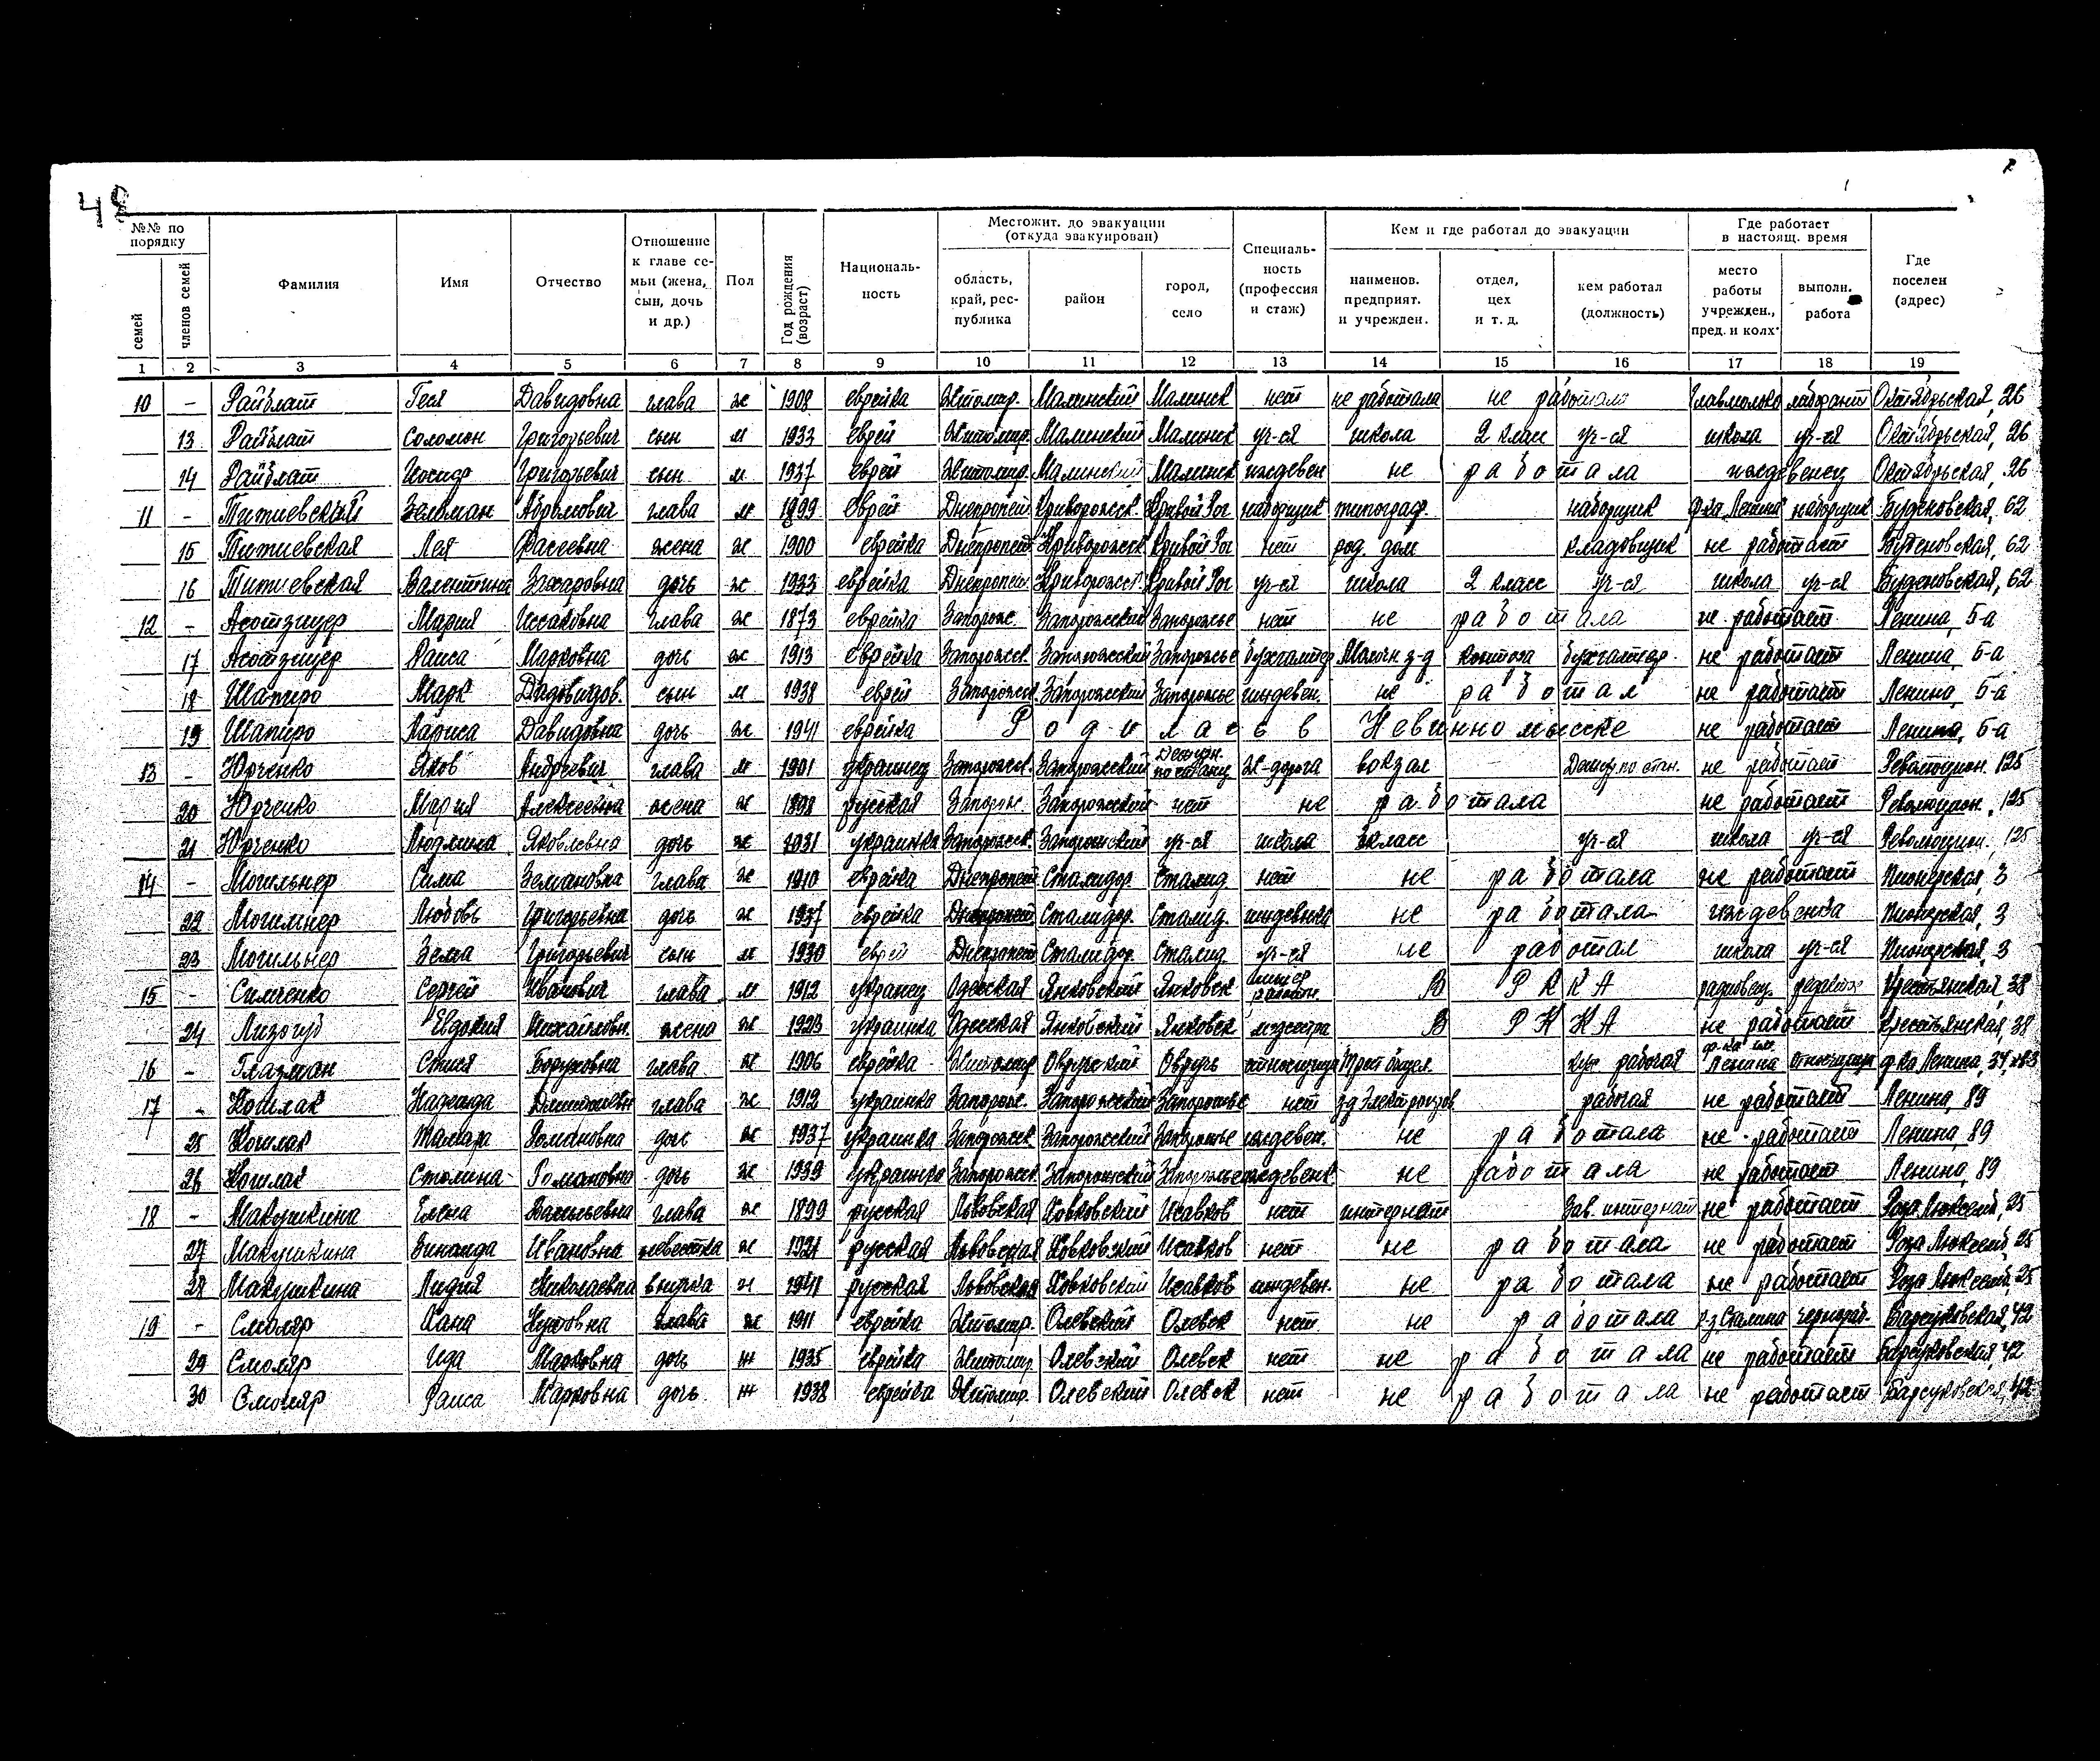 48
№№ по порядку Фамилия Имя Отчество Отношение к главе семьи (жена, сын, дочь и др.) Пол Год рождения (возраст) Националь-ность Местожит. до эвакуации (откуда эвакуирован) Специаль-ность (профессия и стаж) Кем и где работал до эвакуации Где работает в настоящ. время Где поселен (адрес)
семей членов семей область, край, рес-публика район город, село наименов. предприят. и учрежден. отдел, цех и т. д. кем работал (должность) место работы учрежден., пред. и колх. выполн. работа
1 2 3 4 5 6 7 8 9 10 11 12 13 14 15 16 17 18 19
10 - Райблат Геся Давидовна глава ж 1908 еврейка Житомир. Малинский Малинск нет не работала не работала Главмолоко лаборант Октябрьская, 26
13 Райблат Соломон Григорьевич сын м 1933 еврей Житомир. Малинский Малинск уч-ся школа 2 класс уч-ся школа уч-ся Октябрьская, 26
14 Райблат Иосиф Григорьевич сын м 1937 еврей Житомир. Малинский Малинск иждевен не работала иждевенец Октябрьская, 26
11 - Титиевский Зельман Абрамович глава м 1899 еврей Днепропет Криворожск. Кривой Рог наборщик типограф. наборщик ф-ка Ленина наборщик Буденовская, 62
15 Титиевская Лея Фасеевна жена ж 1900 еврейка Днепропет Криворожск Кривой Рог нет род. дом кладовщик не работает Буденовская, 62
16 Титиевская Валентина Захаровна дочь ж 1933 еврейка Днепропет Криворожск. Кривой Рог уч-ся школа 2 класс уч-ся школа уч-ся Буденовская, 62
12 - Мария Исаковна глава ж 1873 еврейка Запорож. Запорожский Запорожье нет не работала не работает Ленина, 5-а
17 Раиса Марковна дочь ж 1913 еврейка Запорожск. Запорожский Запорожье бухгалтер Молочн. з-д контора бухгалтер не работает Ленина, 5-а
18 Шапиро Марк Давовидов. сын м 1938 еврей Запорожск. Запорожский Запорожье иждевен. не работал не работает Ленина, 5-а
19 Шапиро Лариса Давидовна дочь ж 1941 еврейка Родилась в Невинномысске не работает Ленина, 5-а
13 - Юрченко Яков Андреевич глава м 1901 украинец Запорожск. Запорожский Дежурн. по станц Ж-дорога вокзал Дежур. по стан. не работает Революцион. 125
20 Юрченко Мария Алексеевна жена ж 1898 русская Запорож. Запорожский нет не работала не работает Революцион., 125
21 Юрченко Людмила Яковлевна дочь ж 1931 украинка Запорожск. Запорожский уч-ся школа 3класс уч-ся школа уч-ся Революцион., 125
14 - Могильнер Сима Земановна глава ж 1910 еврейка Днепропет Сталидор. Сталид. нет не работала не работает Пионерская, 3
22 Могильнер Любовь Григорьевна дочь ж 1937 еврейка Днепропет Сталидор. Сталид. иждевенка не работала иждевенка Пионерская, 3
23 Могильнер Зема Григорьевич сын м 1930 еврей Днепропет Сталидор. Сталид. уч-ся не работал школа уч-ся Пионерская, 3
15 - Симченко Сергей Иванович глава м 1912 украинец Одесская Янковский Янковск В РККА радиовещ. Крестьянская, 38
24 Лизогуб Евдокия Михайловн. жена ж 1923 украинка Одесская Янковский Янковск медсестра В РККА не работает Крестьянская, 38
16 - Глазман Стися Боруховна глава ж 1906 еврейка Житомир Овручский Овручь рабочая ф-ка им. Ленина ф-ка Ленина, 34,
17 - Кошлак Надежда глава ж 1912 украинка Запорож. Запорожский Запорожье нет рабочая не работает Ленина, 89
25 Кошлак Тамара Романовна дочь ж 1937 украинка Запорожск. Запорожский Запорожье иждевен. не работала не работает Ленина, 89
26 Кошлак Сталина Романовна дочь ж 1939 украинка Запорожск. Запорожский Запорожье иждевенк. не работала не работает Ленина, 89
18 - Макушкина Елена Васильевна глава ж 1899 русская Львовская Ховковский Исавков нет интернат Зав. интернат не работает Роза Люксемб, 25
27 Макушкина Зинаида Ивановна невестка ж 1921 русская Львовская Ховковский Исавков нет не работала не работает Роза Люксемб, 25
28 Макушкина Лидия Николаевна внучка ж 1941 русская Львовская Ховковский Исавков иждевен. не работала не работает Роза Люксемб, 25
19 - Смоляр Хана глава ж 1911 еврейка Житомир. Олевский Олевск нет не работала к-з Сталина чернораб. Барсуковская, 42
29 Смоляр Ида Марковна дочь ж 1935 еврейка Житомир Олевский Олевск нет не работала не работает Барсуковская, 42
30 Смоляр Раиса Марковна дочь ж 1938 еврейка Житомир. Олевский Олевск нет не работала не работает Барсуковская, 42